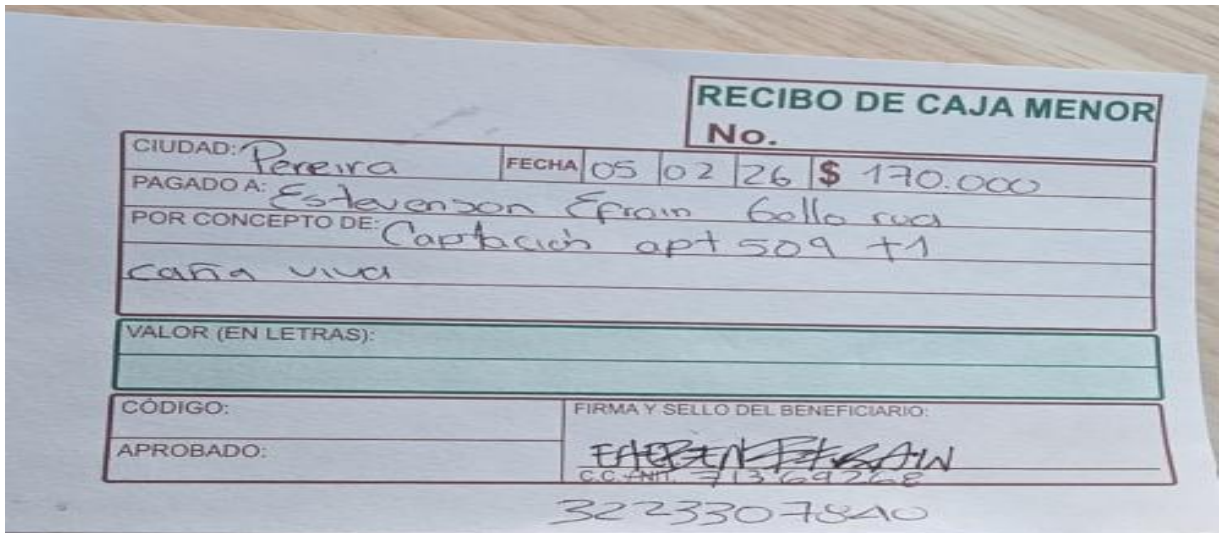 RECIBO DE CAJA MENOR
No.
CIUDAD: Pereira FECHA 05 02 26 $ 170.000
PAGADO A: Estevenson Efrain Gallo rua
POR CONCEPTO DE: Captación apt 509 t1
caña viva
VALOR (EN LETRAS):
CÓDIGO:
FIRMA Y SELLO DEL BENEFICIARIO:
APROBADO:
C.C. NIT. 71369268
3223307840